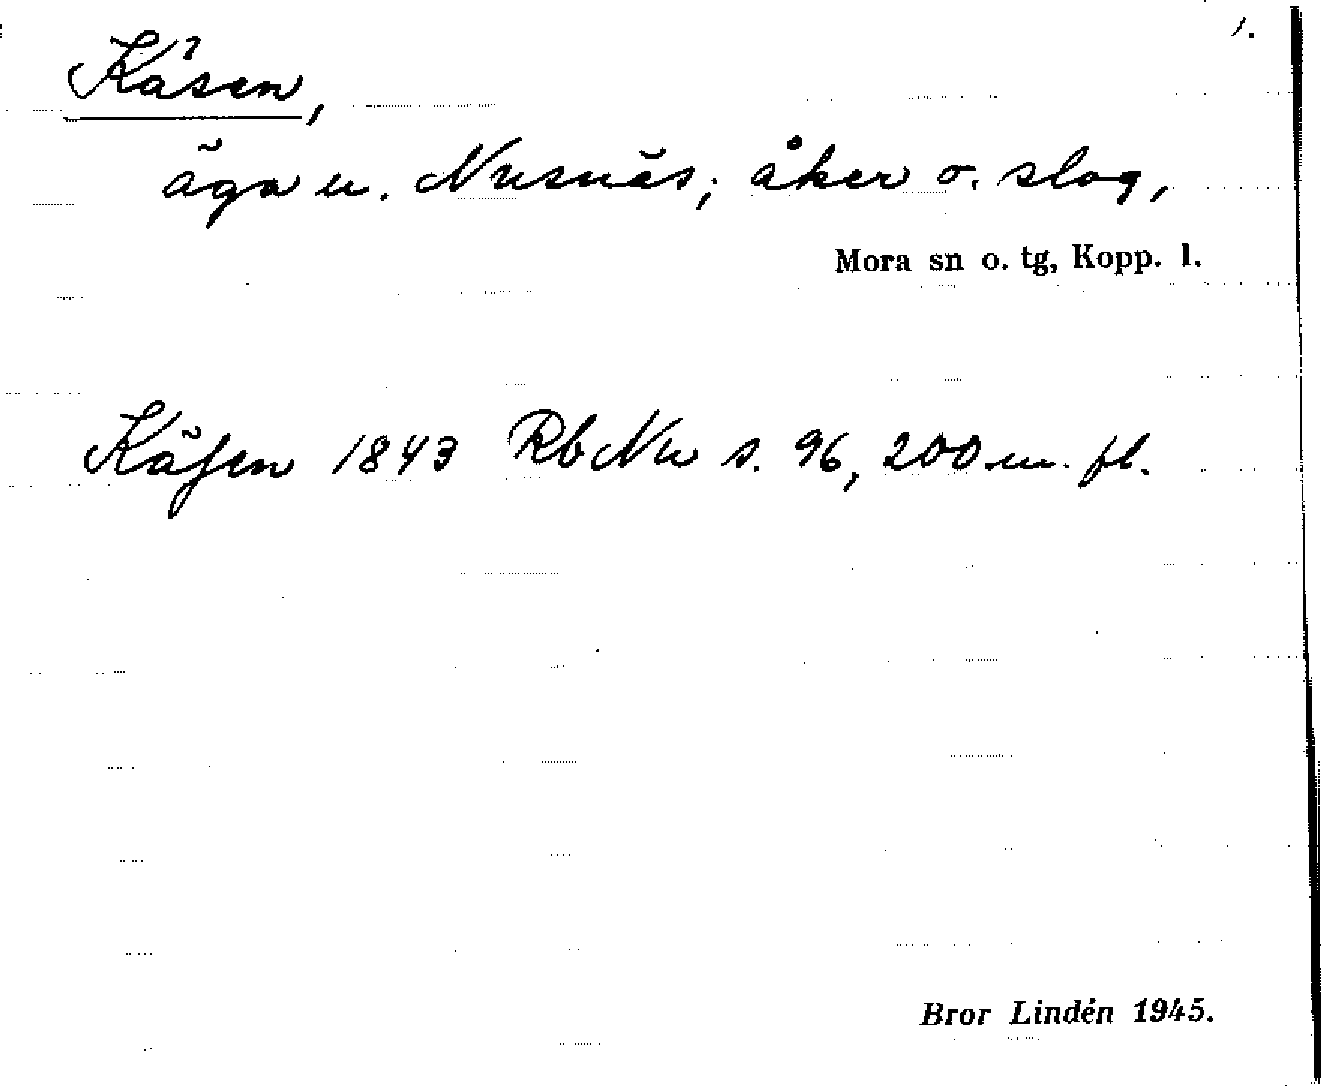 1.
Käsen,
äga u. Nusnäs; åker o. slog,
Mora sn o. tg, Kopp. l.
Käſen 1843 Rb Nu s. 96, 200 m. fl.
Bror Lindén 1945.